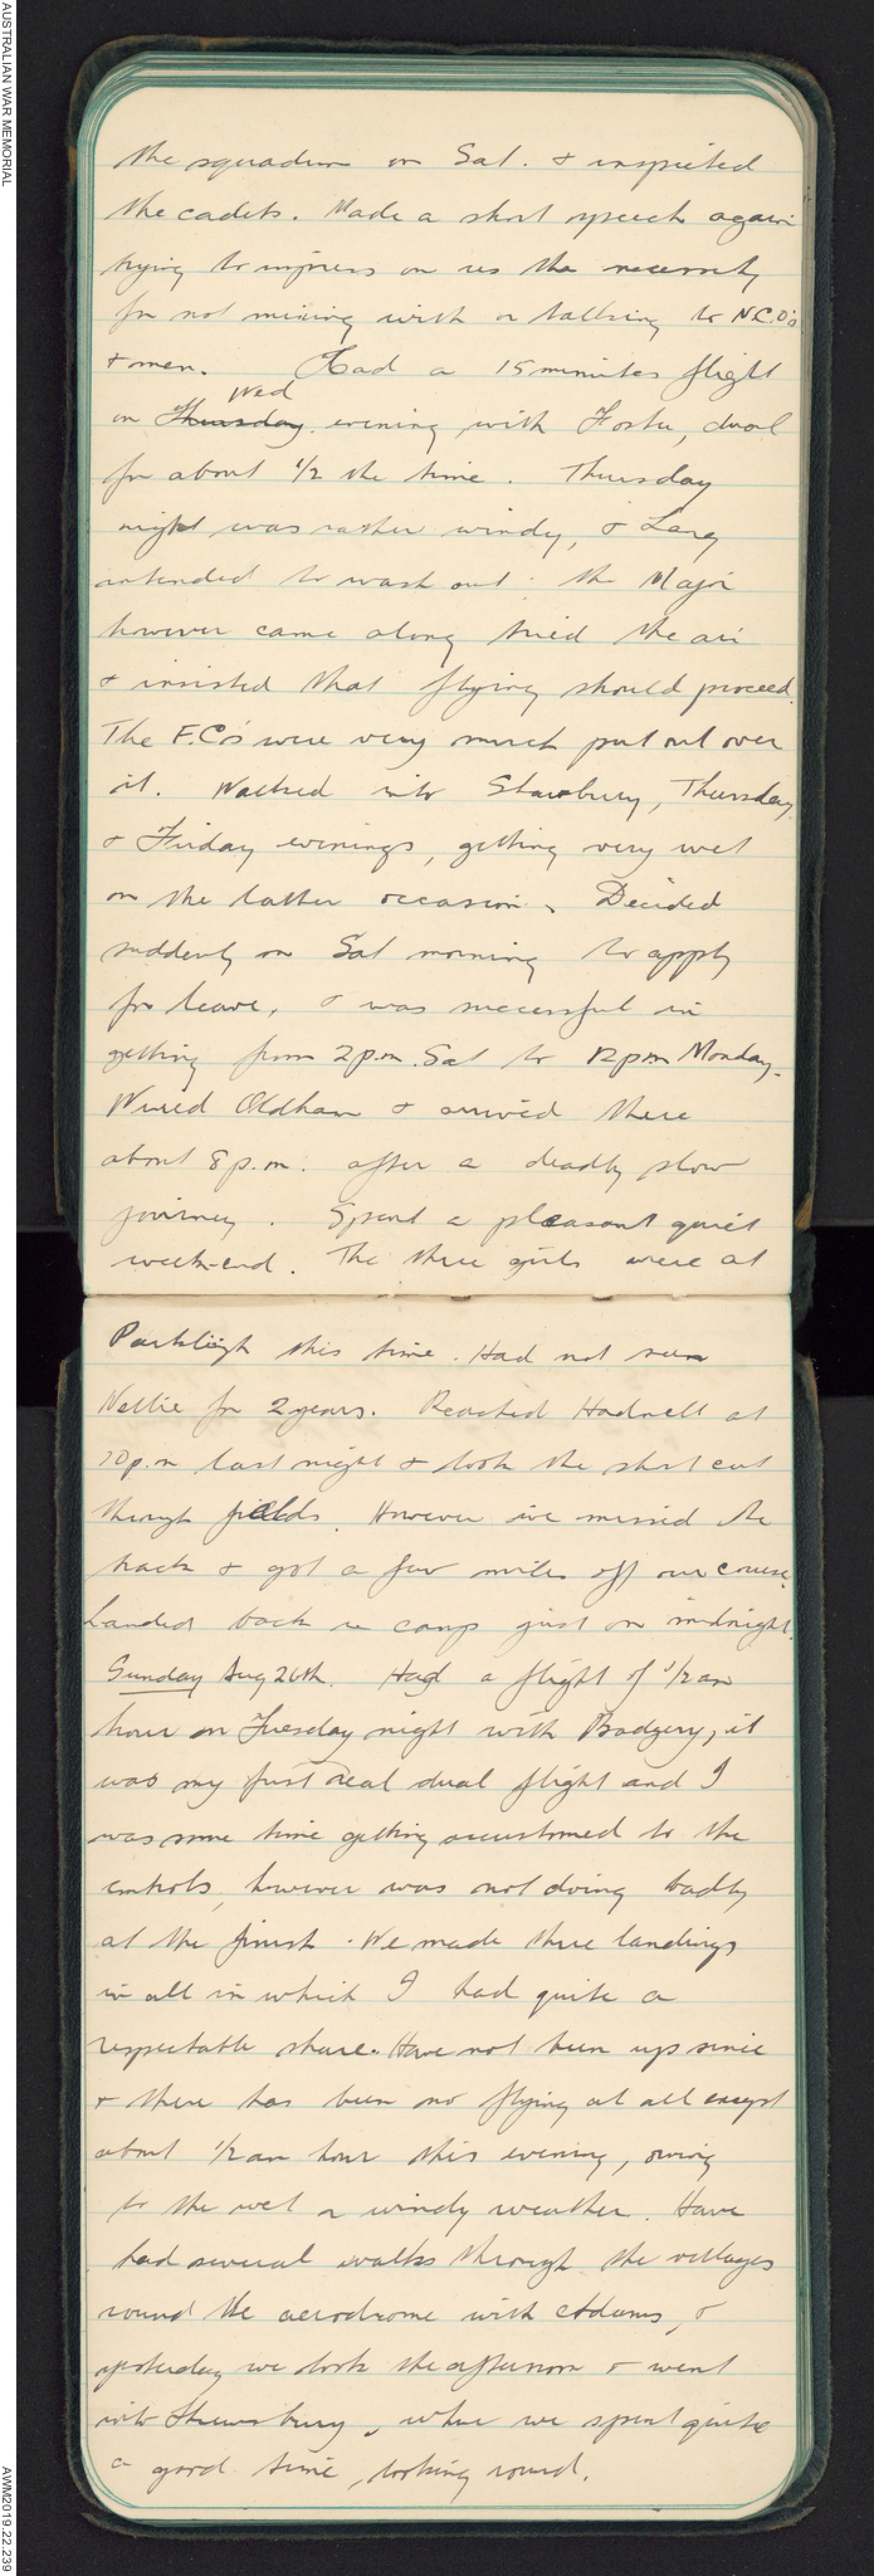 AUSTRALIAN WAR MEMORIAL
the squadron on Sat. & inspected
the cadets. Made a short speech again
trying to impress on us the necessity
for not mixing with or talking to N.C.O's
& men. Had a 15 minutes flight
Wed
on Thursday evening with Foster, dual
for about 1/2 the time. Thursday
night was rather windy, & Lang
intended to wash out: the Major
however came along tried the air
& insisted that flying should proceed.
The F.C's were very much put out over
it. Walked into Shawbury, Thursday
& Friday evenings, getting very wet
on the latter occasion. Decided
suddenly on Sat morning to apply
for leave, & was successful in
getting from 2 p.m. Sat to 12 pm Monday.
Wired Oldham & arrived there
about 8 p.m. after a deadly slow
journey. Spent a pleasant quiet
week-end. The three girls were at
Parkleigh this time. Had not seen
Nellie for 2 years. Reached Hadnall at
10 p.m last night & took the short cut
through fields. However we missed the
track & got a few miles off our course.
Landed back in camp just on midnight.
Sunday Aug 26th. Had a flight of 1/2 an
hour on Tuesday night with Badgery, it
was my first real dual flight and I
was some time getting accustomed to the
controls, however was not doing badly
at the finish. We made three landings
in all in which I had quite a
respectable share. Have not been up since
& there has been no flying at all except
about 1/2 an hour this evening, owing
to the wet & windy weather. Have
had several walks through the villages
round the aerodrome with Adams, &
yesterday we took the afternoon & went
into Shrewsbury, where we spent quite
a good time, looking round.
AWM2019.22.239